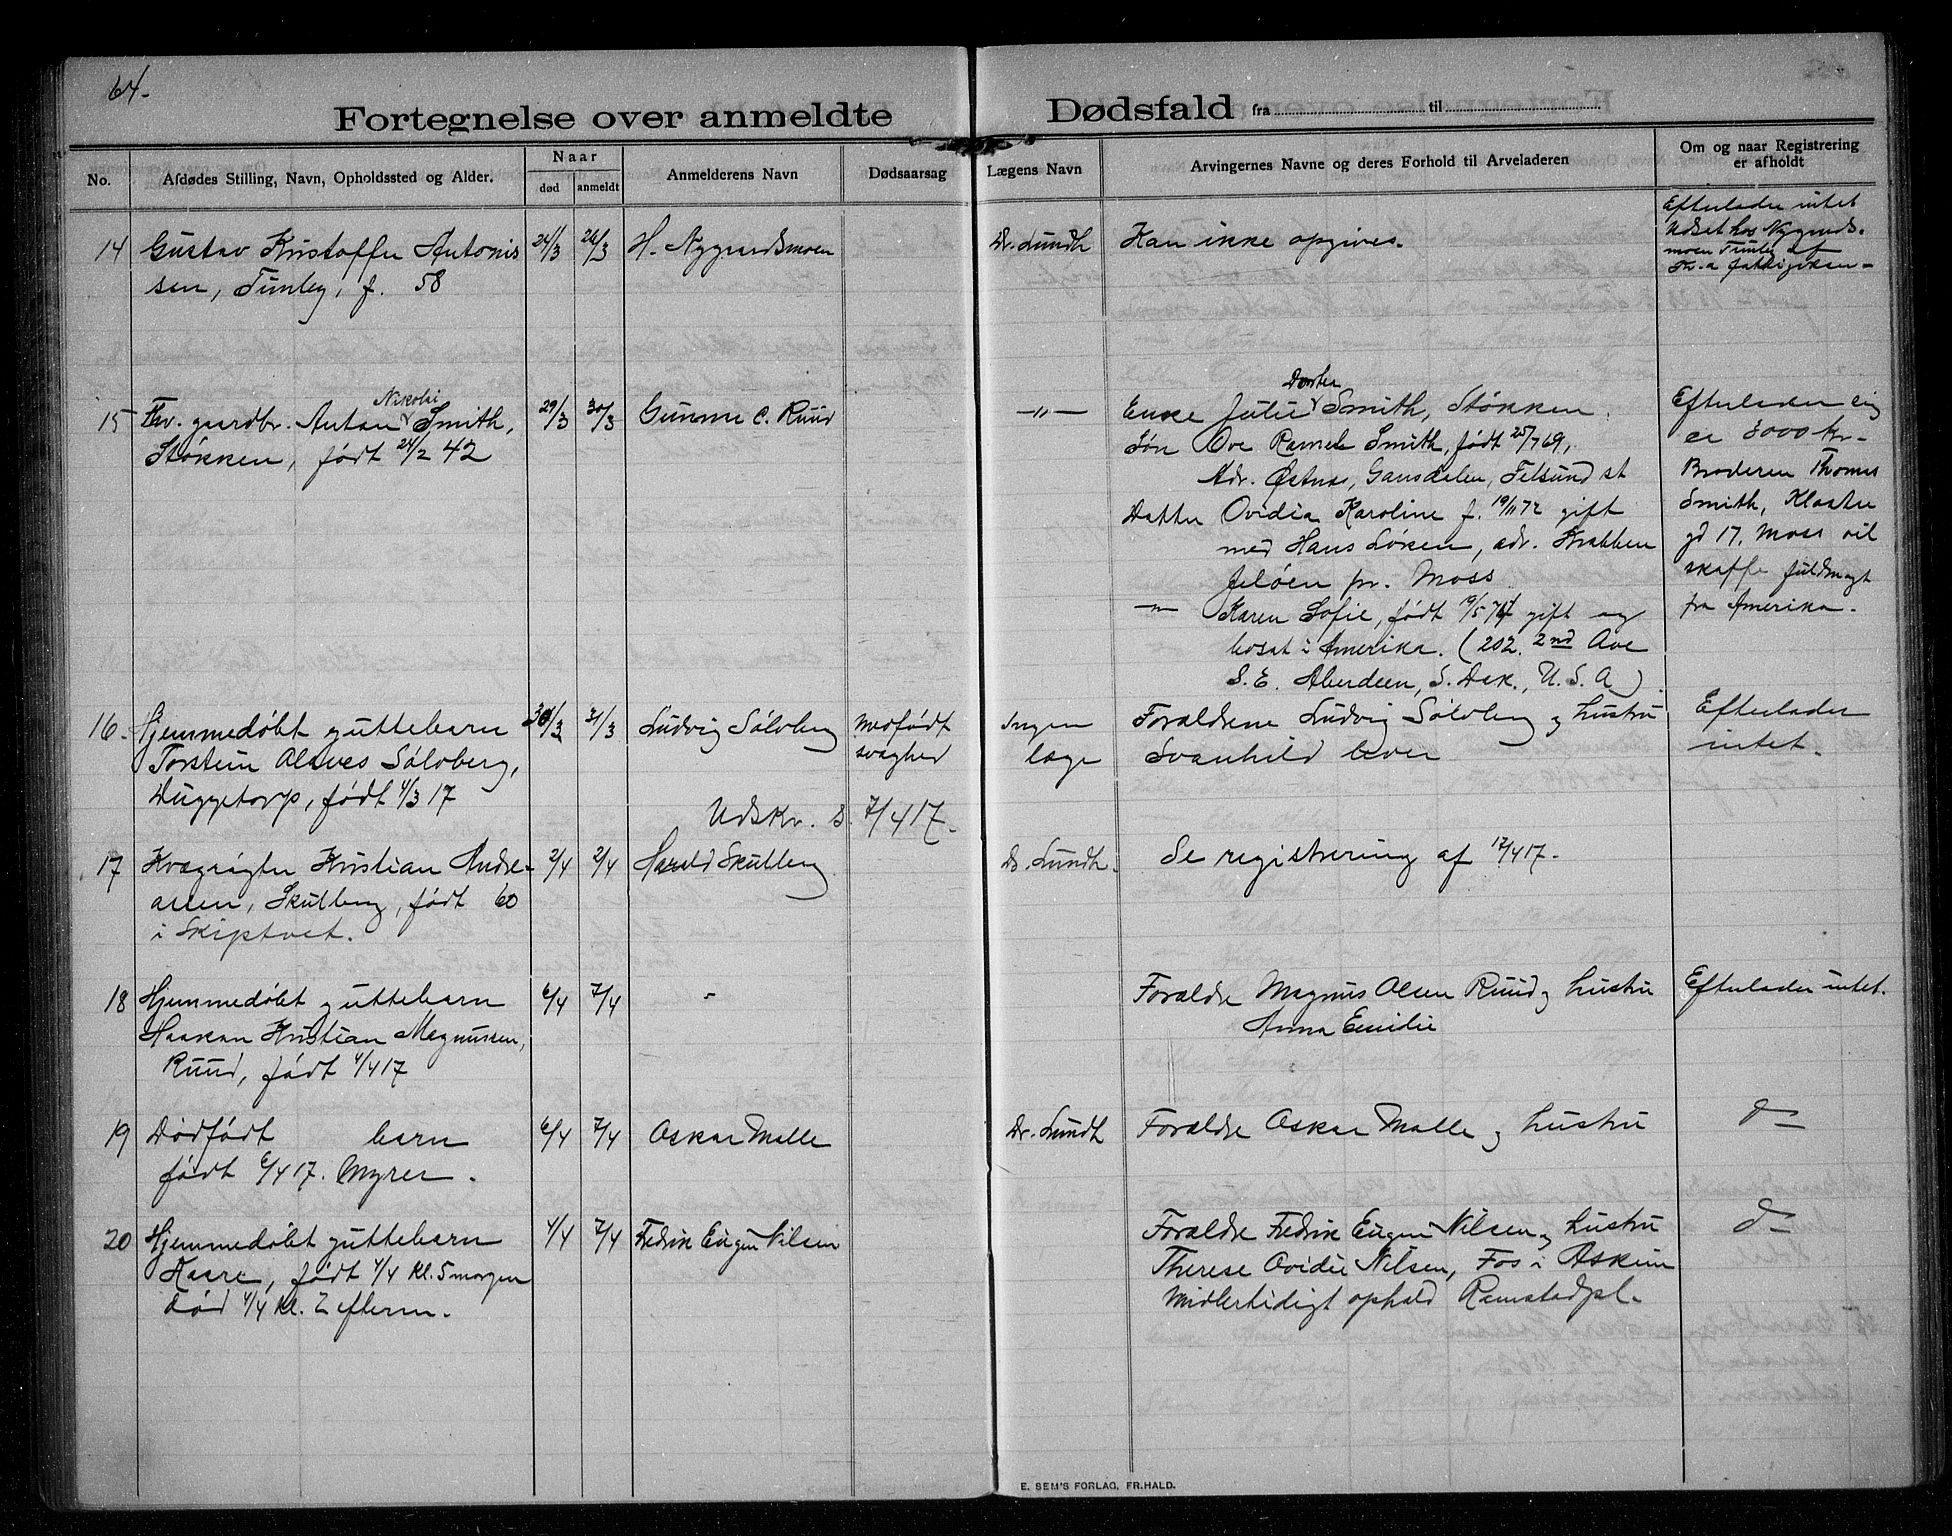 64.
Fortegnelse over anmeldte Dødsfald fra til
No.
Afdødes Stilling, Navn, Opholdssted og Alder.
Naar
død
anmeldt
Anmelderens Navn
Dødsaarsag
Lægens Navn
Arvingernes Navne og deres Forhold til Arveladeren
Om og naar Registrering
er afholdt
14
Gustav Kristoffer Antonis
sen, Tumby, f. 58
24/3
26/3
H. Nygaardsmoen
Dr. Lundh
Kan ikke opgives.
Efterlader intet
Udsat hos Nygaards-
moen Tumby af
Th-a fattigvæsen-
15
Fhv. gaardbr. Anton Nikolai Smith,
Støkken, født 24/2 42
29/3
30/3
Gunerius C. Ruud
-"-
Enke Julie Dortea Smith, Støkken.
Søn Ove Ramel Smith, født 25/7 69,
Adr. Østnes, Gansdalen, Fetsund st
Datter Ovidia Karoline f. 19/11 72 gift
med Hans Løken, adr. Krabben
Jeløen pr. Moss
-"- Karen Sofie, født 19/5 74 gift og
bosat i Amerika. (202. 2nd Ave
S.E. Aberdeen, S. Dak., U.S.A).
Efterlader sig
ca 3000 kr-
Broderen Thomas
Smith, Kloster
gd 17. Moss vil
skaffe fuldmagt
fra Amerika.
16.
Hjemmedøbt guttebarn
Torstein Sølvberg,
Duggetorp, født 4/3 17
30/3
31/3
Ludvig Sølvberg
medfødt
svaghed
Ingen
læge
Forældrene Ludvig Sølvberg og hustru
Svanhild lever
Efterlader
intet.
Udskr. s. 7/4 17.
17
Kvægrøgter Kristian Andre-
asen, Skulberg, født 60
i Skiptvet.
2/4
2/4
Harald Skulberg
Dr. Lundh.
Se registrering af 12/4 17.
18
Hjemmedøbt guttebarn
Haakon Kristian Magnussen,
Ruud, født 4/4 17
6/4
7/4
-
Forældre Magnus Olsen Ruud og hustru
Anna Emilie
Efterlader intet.
19
Dødfødt barn
født 6/4 17. Myrer.
6/4
7/4
Oskar Malle
Dr. Lundh
Forældre Oskar Malle og hustru
d-
20
Hjemmedøbt guttebarn
Kaare, født 4/4 kl. 5 morgen
død 4/4 kl. 2 efterm.
4/4
7/4
Fredrik Eugen Nilsen
Forældre Fredrik Eugen Nilsen og hustru
Therese Ovidie Nilsen, Fos i Askim
Midlertidigt ophold Ramstadpl.
d-
E. SEM'S FORLAG, FR.HALD.